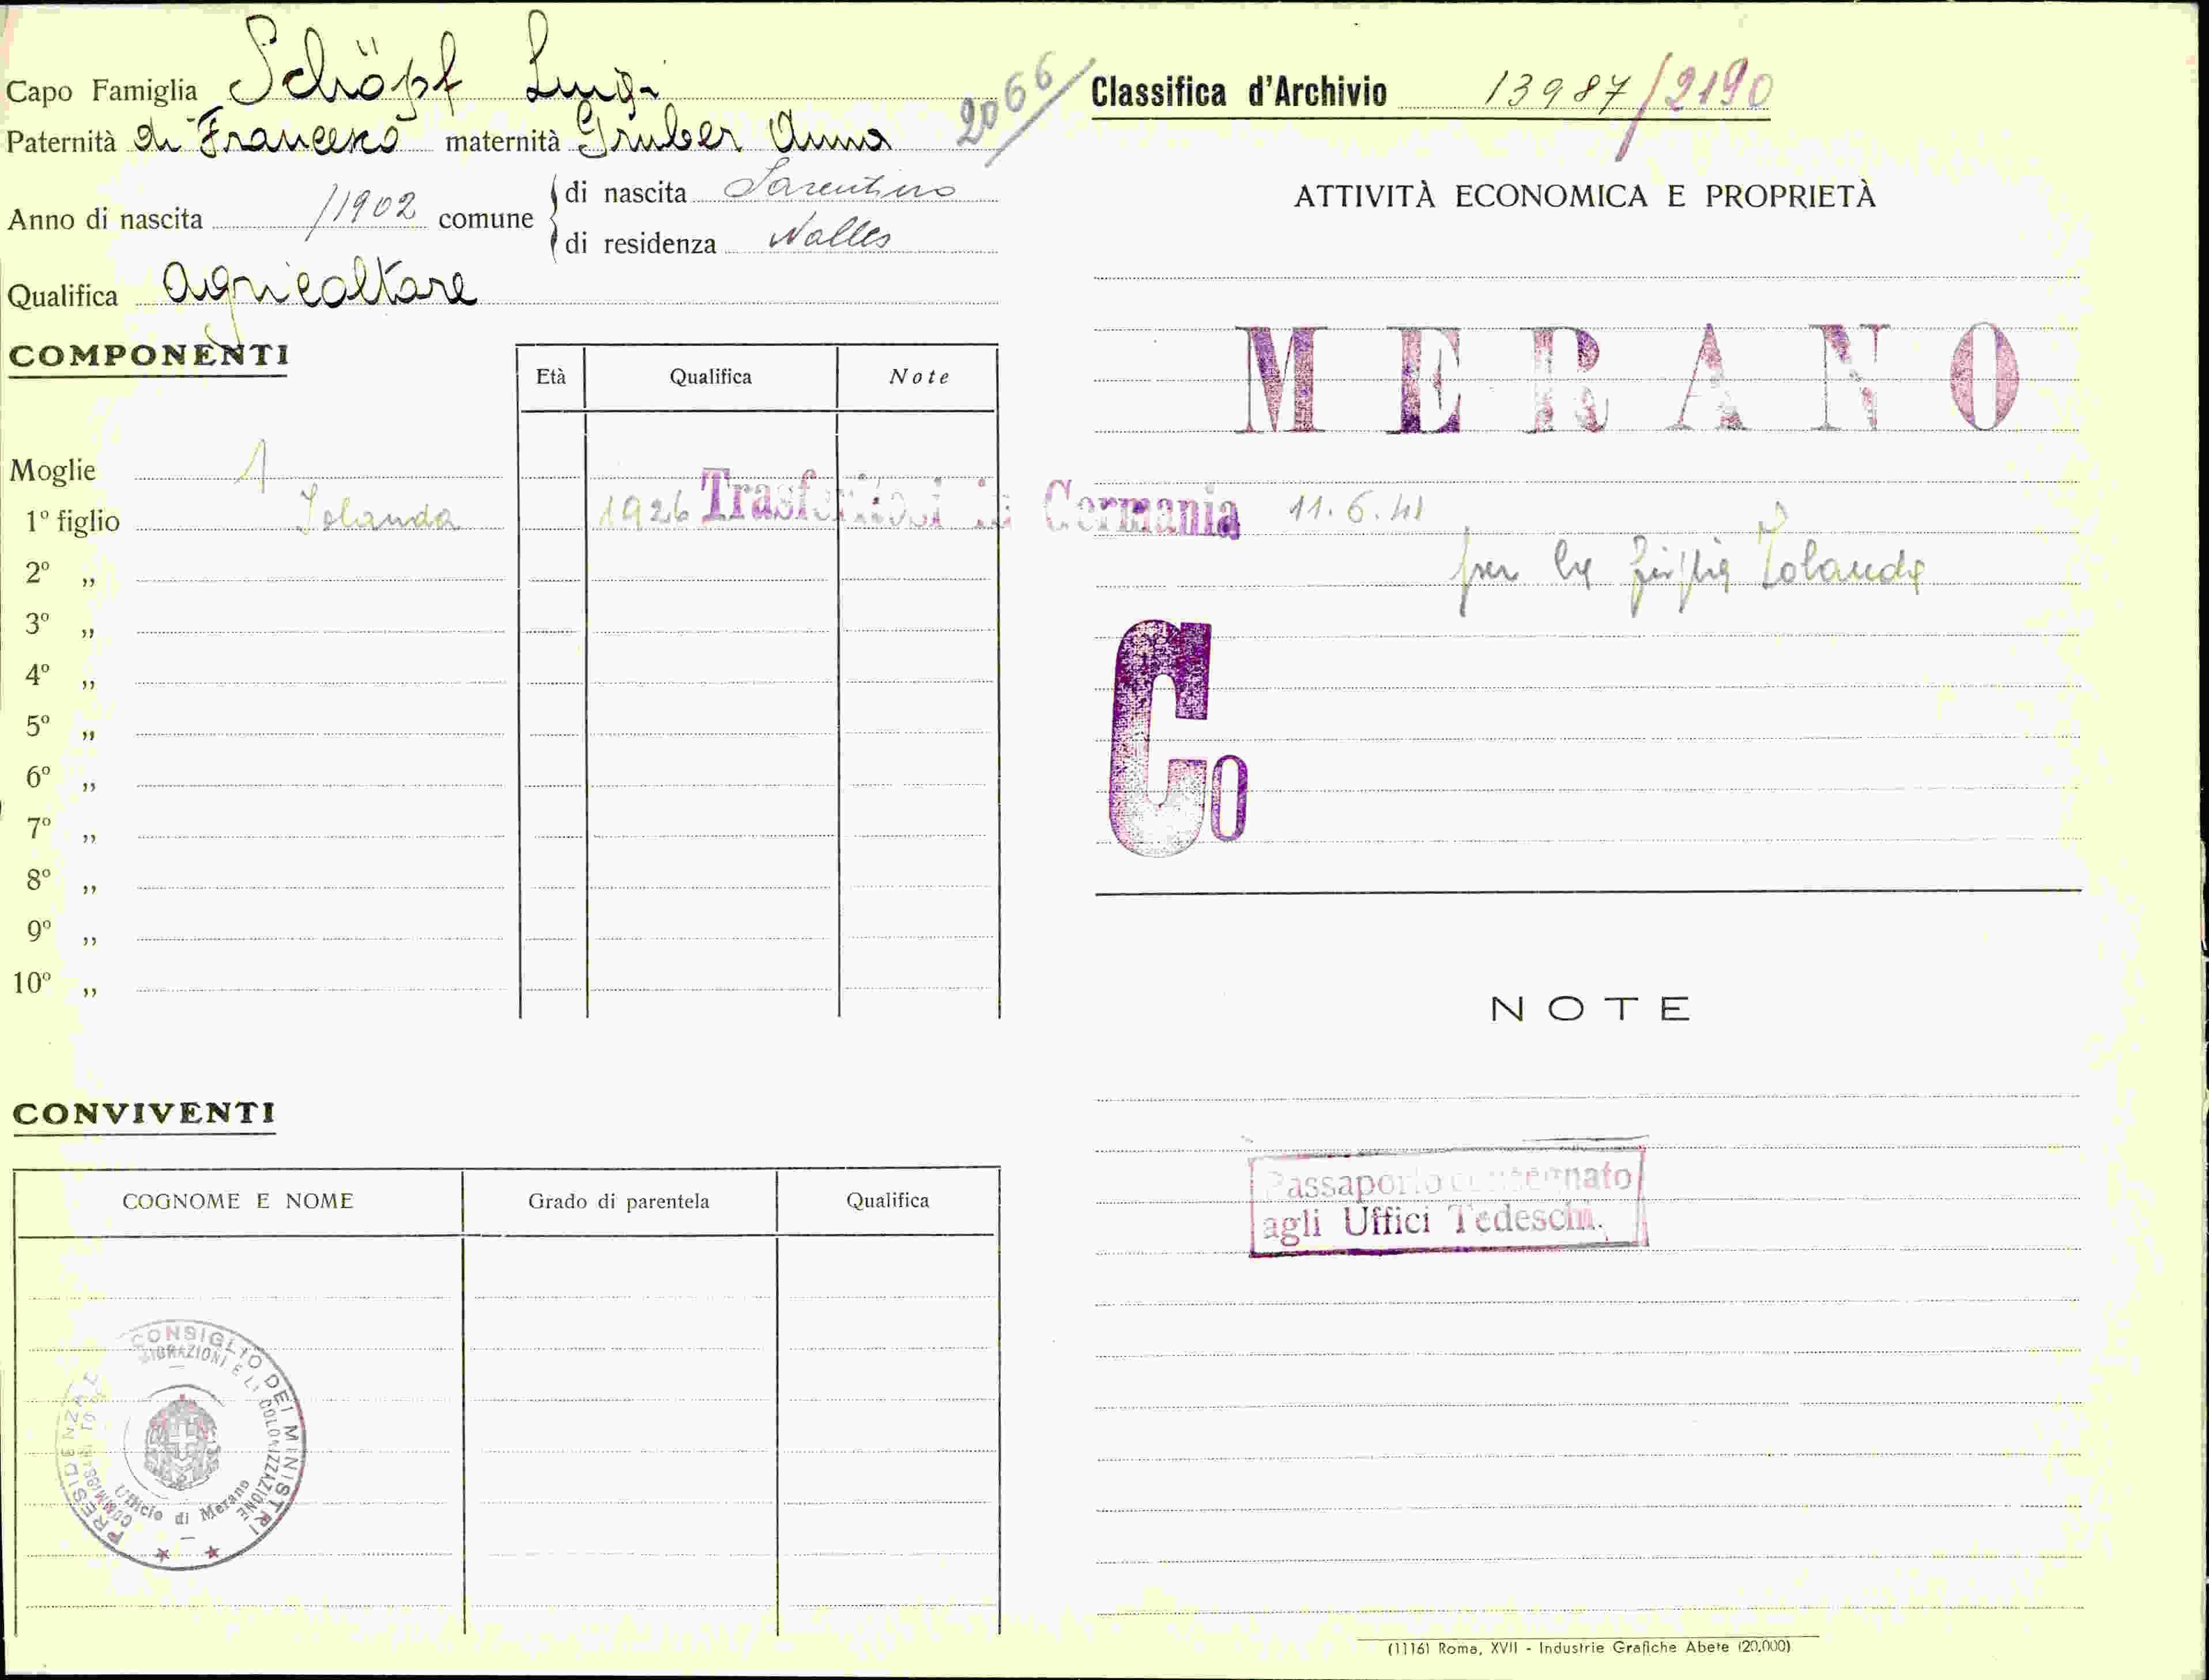 Capo Famiglia Schöpf Luigi
Paternità di Francesco maternità Gruber Anna
2066
Anno di nascita /1902 comune di nascita Sarentino
di residenza Nalles
Qualifica agricoltore
COMPONENTI
Età Qualifica Note
Moglie 1
1º figlio Iolanda 1926 Trasferitosi in Germania 11.6.41
2º „
3º „
4º „
5º „
6º „
7º „
8º „
9º „
10º „
CONVIVENTI
COGNOME E NOME Grado di parentela Qualifica
PRESIDENZA CONSIGLIO DEI MINISTRI
MIGRAZIONI E LA COLONIZZAZIONE
Ufficio di Merano
Classifica d'Archivio 13987/2190
ATTIVITÀ ECONOMICA E PROPRIETÀ
MERANO
per la figlia Iolanda
Co
NOTE
Passaporto consegnato
agli Uffici Tedeschi.
(11161 Roma, XVII - Industrie Grafiche Abete (20.000)